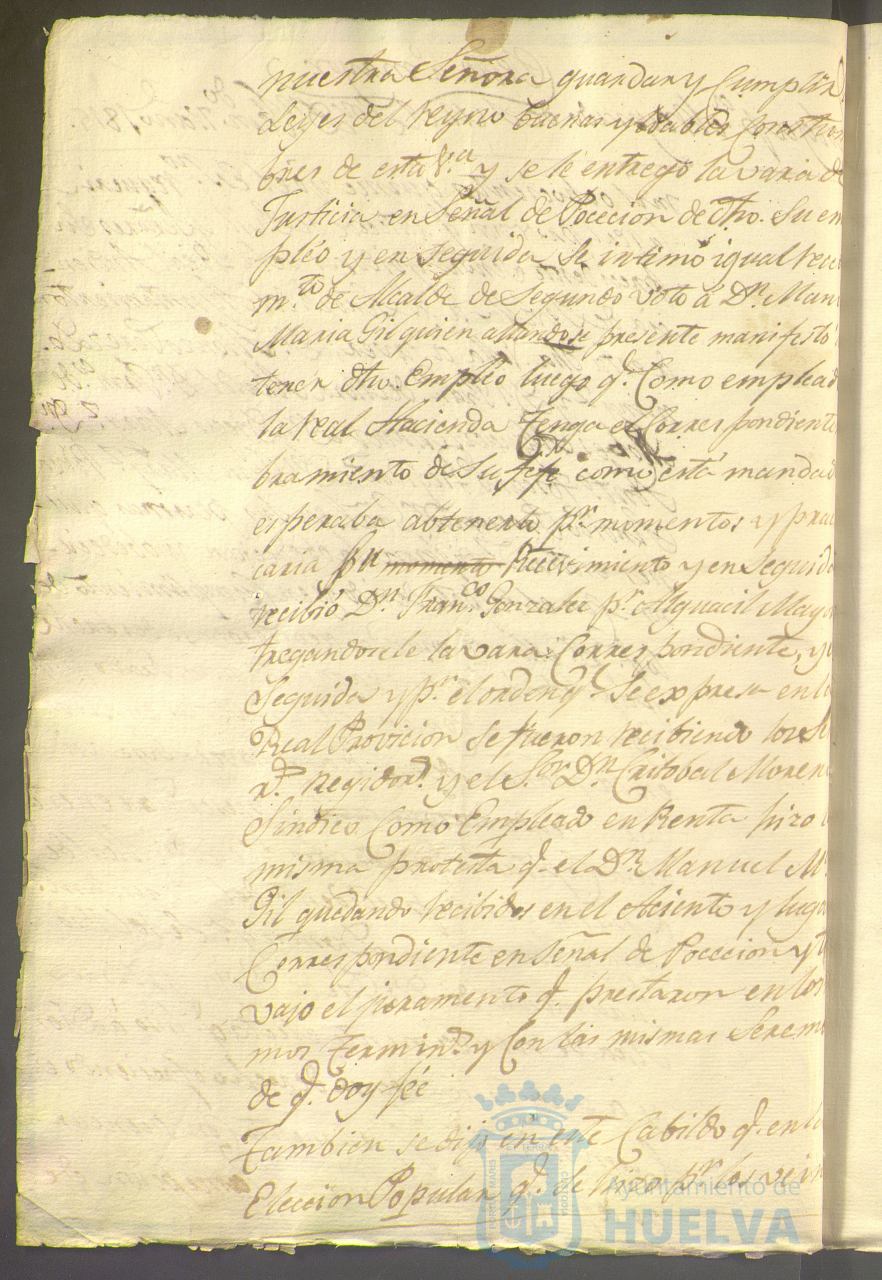 nuestra Señora guardar y Cumplir
Leyes del Reyno buenas y loables Costum
bres de esta V.ª y se le entregó la vara de
Justicia en Señal de Pocecion de dho. Su em
pléo y en seguida Se intimó igual Reci
m.to de Alcalde de Segundo voto á Dn. Man
Maria Gil quien allandose presente manifestó
tener dho. Empléo luego q.e Como emplead
la Real Hacienda tenga el Correspondiente
bramiento de Su Jefe como está mandad
esperaba obtenerlo pr. momentos y prac
icaria su momento Recivimiento y en Seguida
recibió Dn. Fran.co Gonzalez pr. Alguacil Mayo
tregandosele la vara Correspondiente, y
Seguida y pr. el orden q.e Se expresa en la
Real Provicion se fueron recibiendo los S
r.s Regidor.s y el S.or Dn. Cristobal Moren
Sindico Como Empleado en Renta hizo l
misma protesta q.e el Dn. Manuel M.ª
Gil quedando recibidos en el Aciento y luga
Correspondiente en Señal de Pocecion y
vajo el juramento q.e prestaron en los
mos Termin.s y Con las mismas Seremo
de q.e doy fée
Tambien se dijo en este Cabildo q.e en la
Eleccion Popular q.e de hizo pr. los vein
Ayuntamiento de
HUELVA